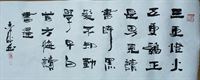 三更燈火
五更雞正
是男兒讀
書時黑
髮不知勤
學早白
首方悔讀
書遲